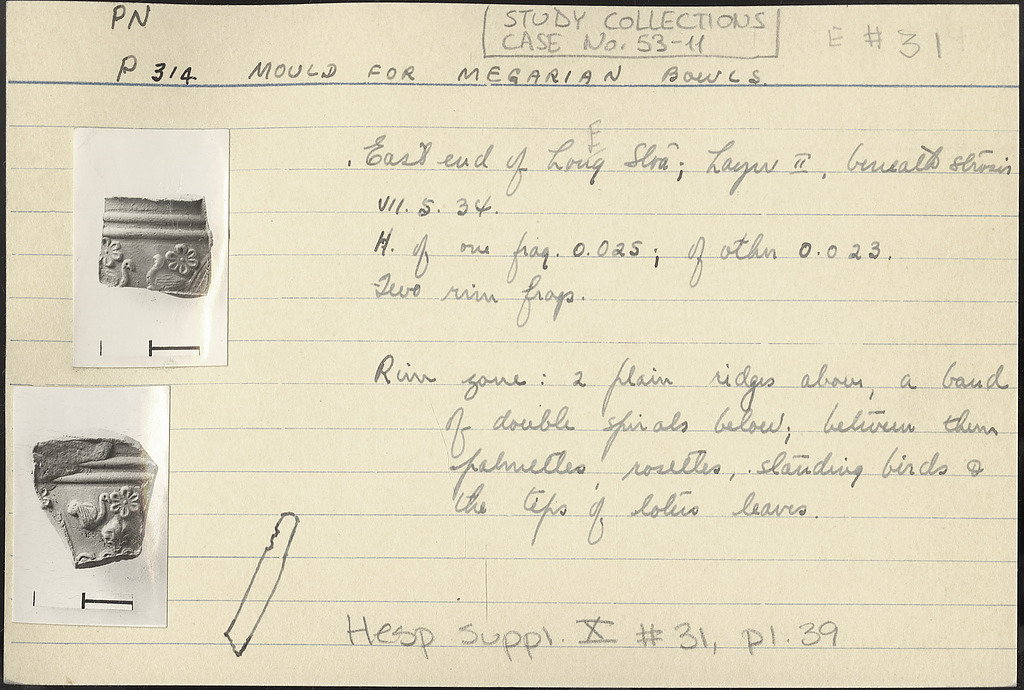 PN
STUDY COLLECTIONS
CASE No. 53-11
E # 31
P 314 MOULD FOR MEGARIAN BOWLS.
E
East end of Long Stoa; Layer II, beneath strosis
VII. 5. 34.
H. of one frag. 0.025; of other 0.023.
Two rim frags.
Rim zone: 2 plain ridges above, a band
of double spirals below; between them
palmettes, rosettes, standing birds &
the tips of lotus leaves.
Hesp Suppl. X # 31, pl. 39